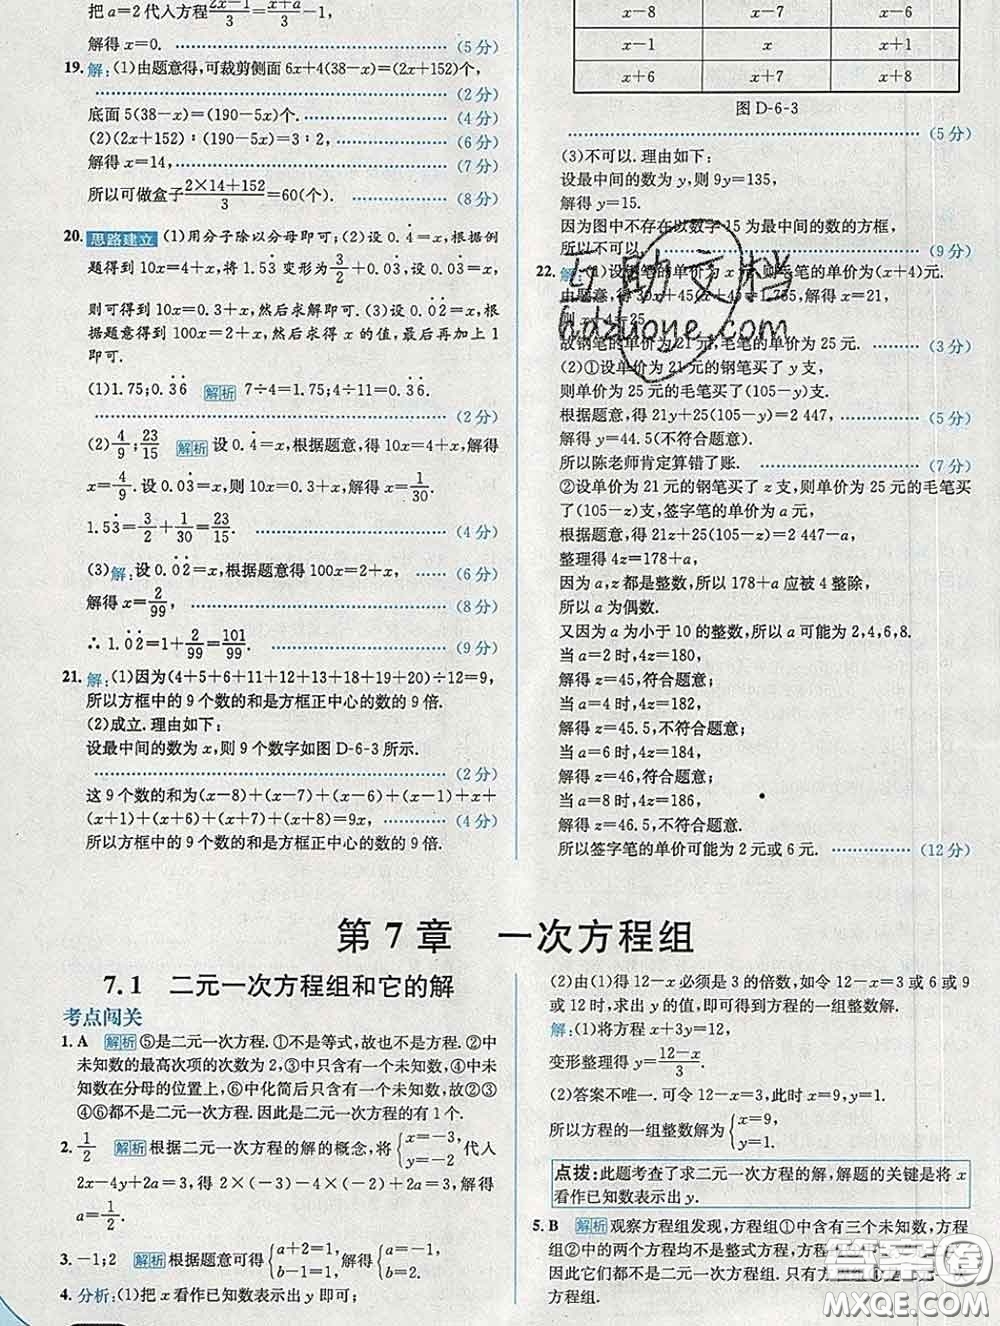 把 a=2 代入方程(2x-1)/3=(x+a)/3-1,
解得 x=0. (5 分)
19. 解:(1)由题意得,可裁剪侧面 6x+4(38-x)=(2x+152)个,
(2 分)
底面 5(38-x)=(190-5x)个. (4 分)
(2)(2x+152):(190-5x)=3:2, (6 分)
解得 x=14, (7 分)
所以可做盒子(2×14+152)/3=60(个). (8 分)
20. 思路建立 (1)用分子除以分母即可;(2)设 0.4̇=x,根据例
题得到 10x=4+x,将 1.53̇ 变形为 3/2+0.03̇,设 0.03̇=x,
则可得到 10x=0.3̇+x,然后求解即可.(3)设 0.0̇2̇=x,根据
题意得到 100x=2+x,然后求得 x 的值,最后再加上 1
即可.
(1)1.75;0.3̇6̇ 解析 7÷4=1.75;4÷11=0.3̇6̇.
(2 分)
(2)4/9;23/15 解析 设 0.4̇=x,根据题意,得 10x=4+x,解得
x=4/9.设 0.03̇=x,则 10x=0.3̇+x,解得 x=1/30.
1.53̇=3/2+1/30=23/15. (4 分)
(3)解:设 0.0̇2̇=x,根据题意得 100x=2+x, (6 分)
解得 x=2/99, (8 分)
∴ 1.0̇2̇=1+2/99=101/99. (9 分)
21. 解:(1)因为(4+5+6+11+12+13+18+19+20)÷12=9,
所以方框中的 9 个数的和是方框正中心的数的 9 倍.
(2)成立.理由如下:
设最中间的数为 x,则 9 个数字如图 D-6-3 所示.
(2 分)
这 9 个数的和为(x-8)+(x-7)+(x-6)+(x-1)+x+
(x+1)+(x+6)+(x+7)+(x+8)=9x, (4 分)
所以方框中的 9 个数的和是方框正中心的数的 9 倍.
x-8 x-7 x-6
x-1 x x+1
x+6 x+7 x+8
图 D-6-3
(5 分)
(3)不可以.理由如下:
设最中间的数为 y,则 9y=135,
解得 y=15.
因为图中不存在以数字 15 为最中间的数的方框,
所以不可以. (9 分)
22. 解:(1)设钢笔的单价为 x 元,则毛笔的单价为(x+4)元.
由题意,得 30x+45(x+4)=1 755,解得 x=21,
则 x+4=25.
故钢笔的单价为 21 元,毛笔的单价为 25 元. (3 分)
(2)①设单价为 21 元的钢笔买了 y 支,
则单价为 25 元的毛笔买了(105-y)支.
根据题意,得 21y+25(105-y)=2 447, (5 分)
解得 y=44.5(不符合题意).
所以陈老师肯定算错了账. (7 分)
②设单价为 21 元的钢笔买了 z 支,则单价为 25 元的毛笔买
了(105-z)支,签字笔的单价为 a 元,
根据题意,得 21z+25(105-z)=2 447-a,
整理得 4z=178+a,
因为 a,z 都是整数,所以 178+a 应被 4 整除,
所以 a 为偶数.
又因为 a 为小于 10 的整数,所以 a 可能为 2,4,6,8.
当 a=2 时,4z=180,
解得 z=45,符合题意;
当 a=4 时,4z=182,
解得 z=45.5,不符合题意;
当 a=6 时,4z=184,
解得 z=46,符合题意;
当 a=8 时,4z=186,
解得 z=46.5,不符合题意.
所以签字笔的单价可能为 2 元或 6 元. (12 分)
第 7 章 一次方程组
7.1 二元一次方程组和它的解
考点闯关
1. A 解析 ⑤是二元一次方程.①不是等式,故也不是方程.②中
未知数的最高次项的次数为 2,③中只含有一个未知数,④中未
知数在分母的位置上,⑥中化简后只含有一个未知数,故②③
④⑥都不是二元一次方程.因此是二元一次方程的有 1 个.
2. 1/2 解析 根据二元一次方程的解的概念,将{x=-3, y=-2 代入
2x-4y+2a=3,得 2×(-3)-4×(-2)+2a=3,解得
a=1/2.
3. -1;2 解析 根据题意可得{a+2=1, b-1=1,解得{a=-1, b=2.
4. 分析:(1)把 x 看作已知数表示出 y 即可;
(2)由(1)得 12-x 必须是 3 的倍数,如令 12-x=3 或 6 或 9
或 12 时,求出 y 的值,即可得到方程的一组整数解.
解:(1)将方程 x+3y=12,
变形整理得 y=(12-x)/3.
(2)答案不唯一.可令 12-x=3,此时 x=9,y=1.
所以方程的一组整数解为{x=9, y=1.
点拨:此题考查了求二元一次方程的解,解题的关键是将 x
看作已知数表示出 y.
5. B 解析 观察方程组发现,方程组①中含有三个未知数,方程
组②中的两个方程均不是整式方程,方程
因此它们都不是二元一次方程组.只有方程组
方程组.
互助文档
hdzuoye.com
答案圈
MXQE.COM